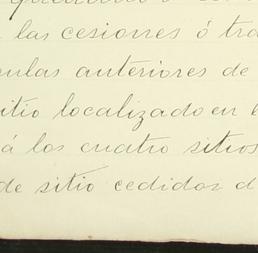 las cesiones ó tra
ulas anteriores de
sitio localizado en e
á los cuatro sitios
de sitio cedidos d